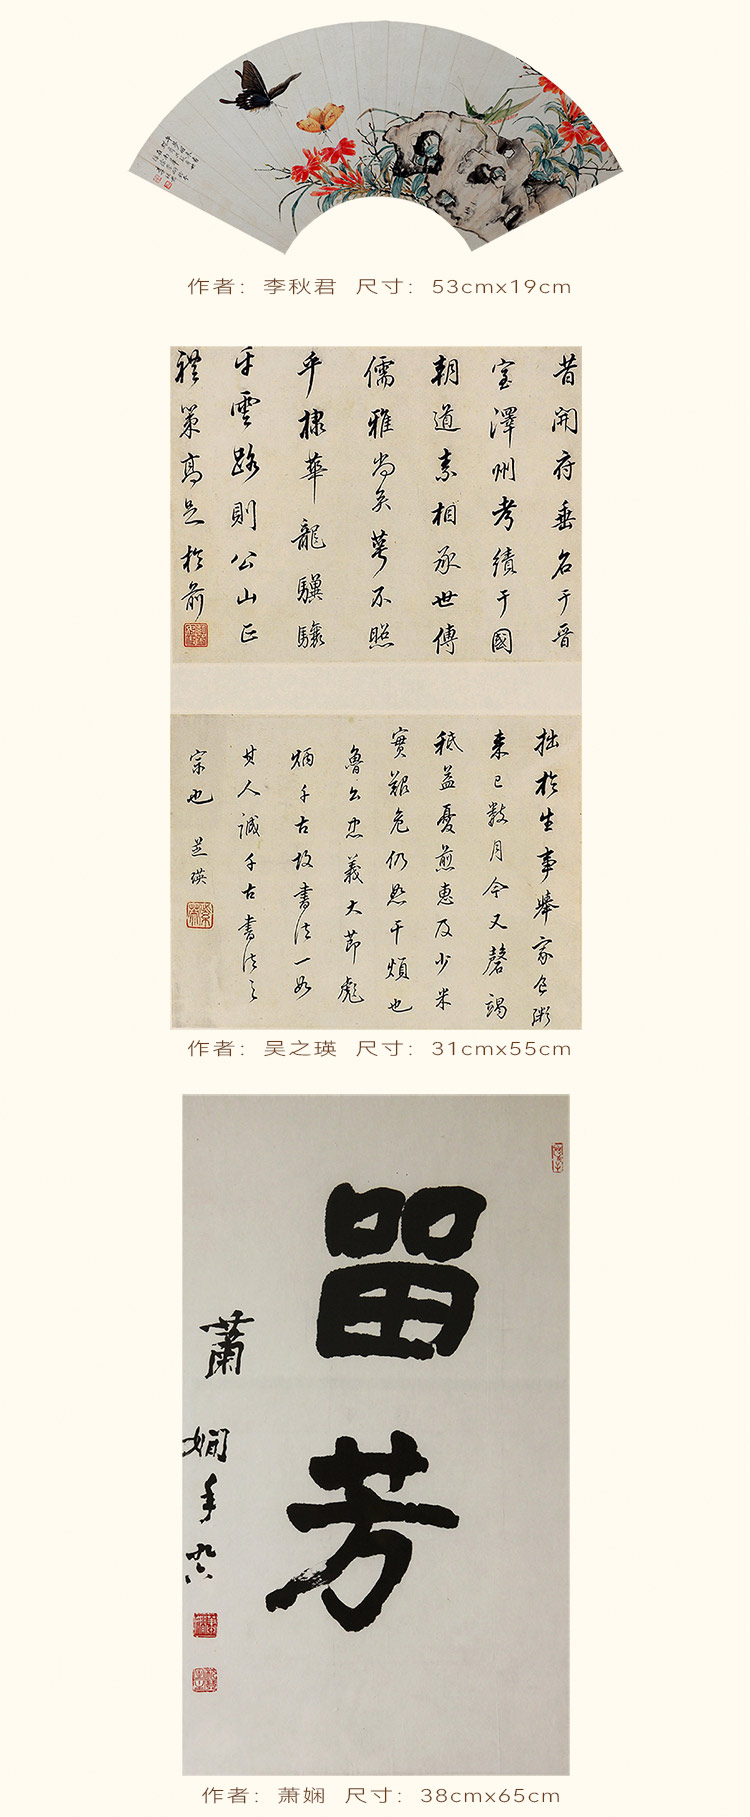 作者：李秋君 尺寸：53cmx19cm
昔開府垂名于晋
室澤州考績于國
朝道素相承世傳
儒雅尚矣萼不照
乎棣華龍驥驤
乎雲路則公山正
禮策高足於前
拙於生事舉家食粥
来已数月今又罄竭
秪益憂煎惠及少米
實艱危仍恕干煩也
魯公忠義大節彪
炳千古故書法一如
其人誠千古書法之
宗也 芝瑛
作者：吴之瑛 尺寸：31cmx55cm
畱芳
蕭嫻手
作者：萧娴 尺寸：38cmx65cm